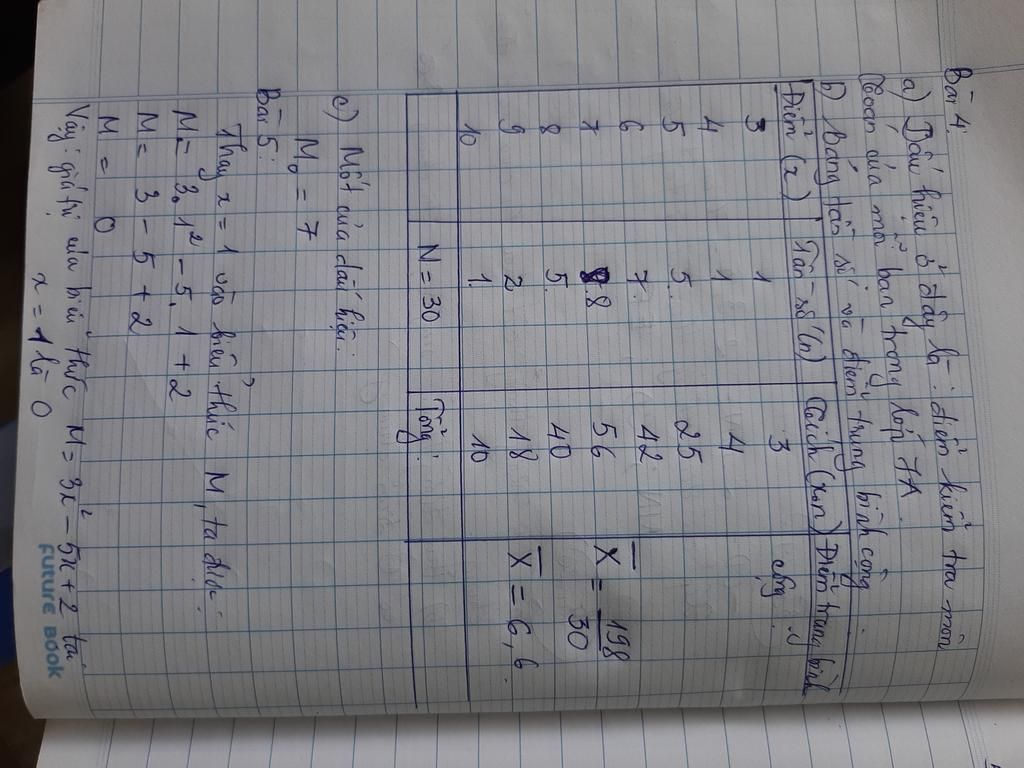 Bài 4:
a) Dấu hiệu ở đây là : điểm kiểm tra môn
toán của mỗi bạn trong lớp 7A.
b) bảng tần số và điểm trung bình cộng.
Điểm (x) Tần số (n) Tích (x.n) Điểm trung bình cộng
3 1 3
4 1 4
5 5 25
6 7 42
7 8 56 X̅ = 198/30
8 5 40
9 2 18 X̅ = 6,6
10 1 10
N = 30 Tổng:
c) Mốt của dấu hiệu:
M₀ = 7
Bài 5:
Thay x = 1 vào biểu thức M, ta được:
M = 3.1² - 5.1 + 2
M = 3 - 5 + 2
M = 0
Vậy: giá trị của biểu thức M = 3x² - 5x + 2 tại
x = 1 là 0
FUTURE BOOK